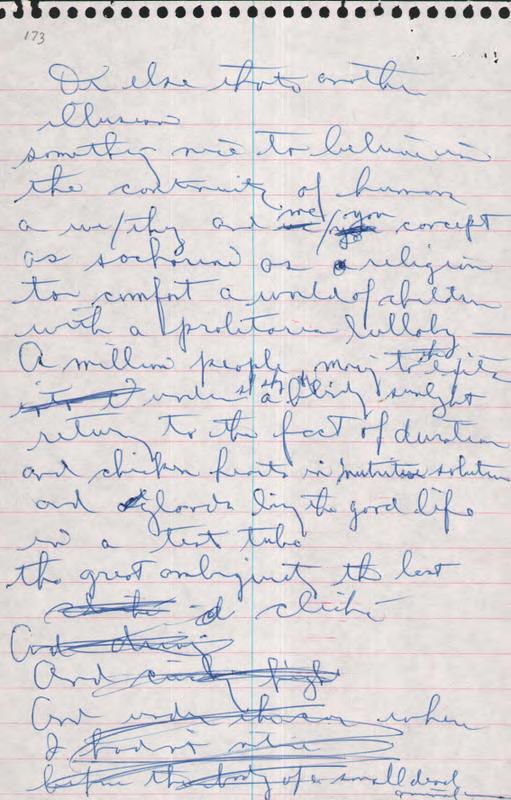 173
Or else that's another
illusion
something nice to believe in
the continuity of human
a we/they and me/you concept
as saccharine as a religion
to comfort a world of children
with a proletarian lullaby —
A million people moving to the
under a sunlight
return to the fact of duration
and chicken hearts in nutritive solution
and glands living the good life
in a test tube
the great ambiguity the last
cliché
And
And
And under the sun when
I hadn't
before the body of a small dead